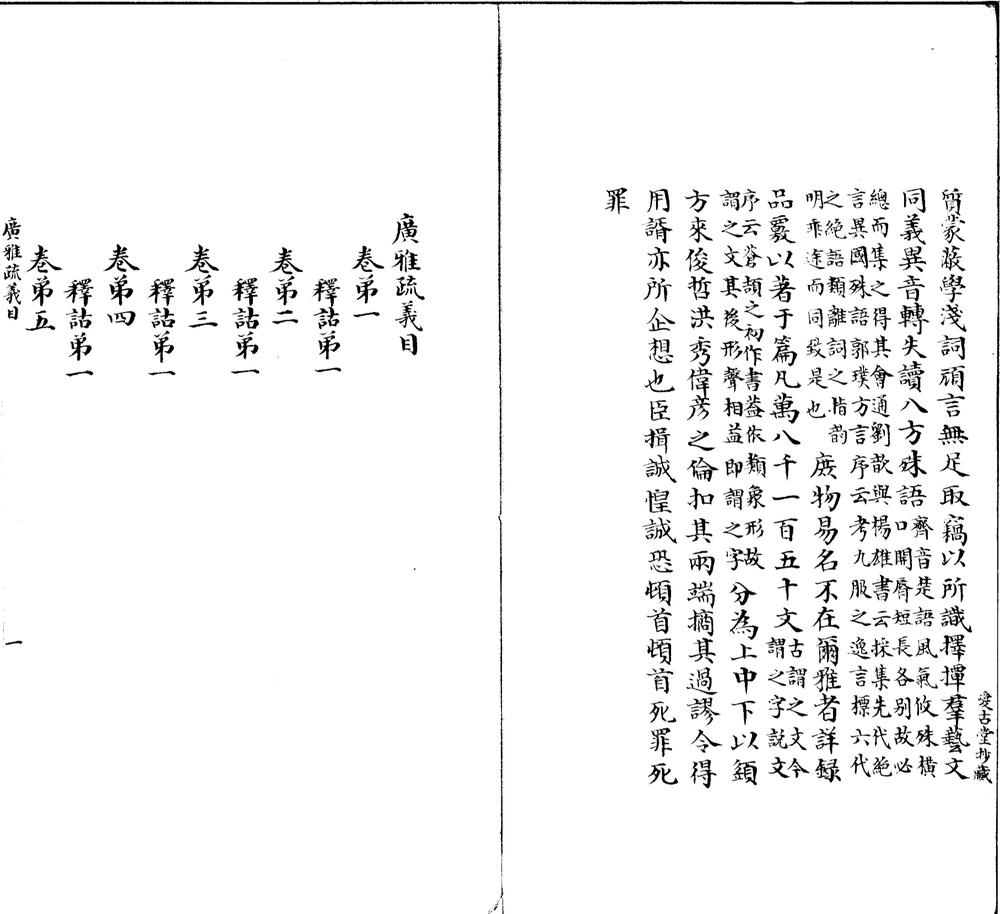 愛古堂抄藏
質蒙蔽學淺詞頑言無足取竊以所識擇撢羣藝文
同義異音轉失讀八方殊語
齊音楚語風氣攸殊橫
口開脣短長各别故必
總而集之得其會通劉歆與楊雄書云採集先代絶
言異國殊語郭璞方言序云考九服之逸言標六代
之絶語類離詞之指韵
明乖途而同致是也
庶物易名不在爾雅者詳録
品覈以著于篇凡萬八千一百五十文
古謂之文今
謂之字説文
序云蒼頡之初作書蓋依類象形故
謂之文其後形聲相益即謂之字
分為上中下以
方來俊哲洪秀偉彦之倫扣其兩端摘其過謬令得
用諝亦所企想也臣揖誠惶誠恐頓首頓首死罪死
罪
廣雅疏義目
卷弟一
釋詁弟一
卷弟二
釋詁弟一
卷弟三
釋詁弟一
卷弟四
釋詁弟一
卷弟五
廣雅疏義目
一